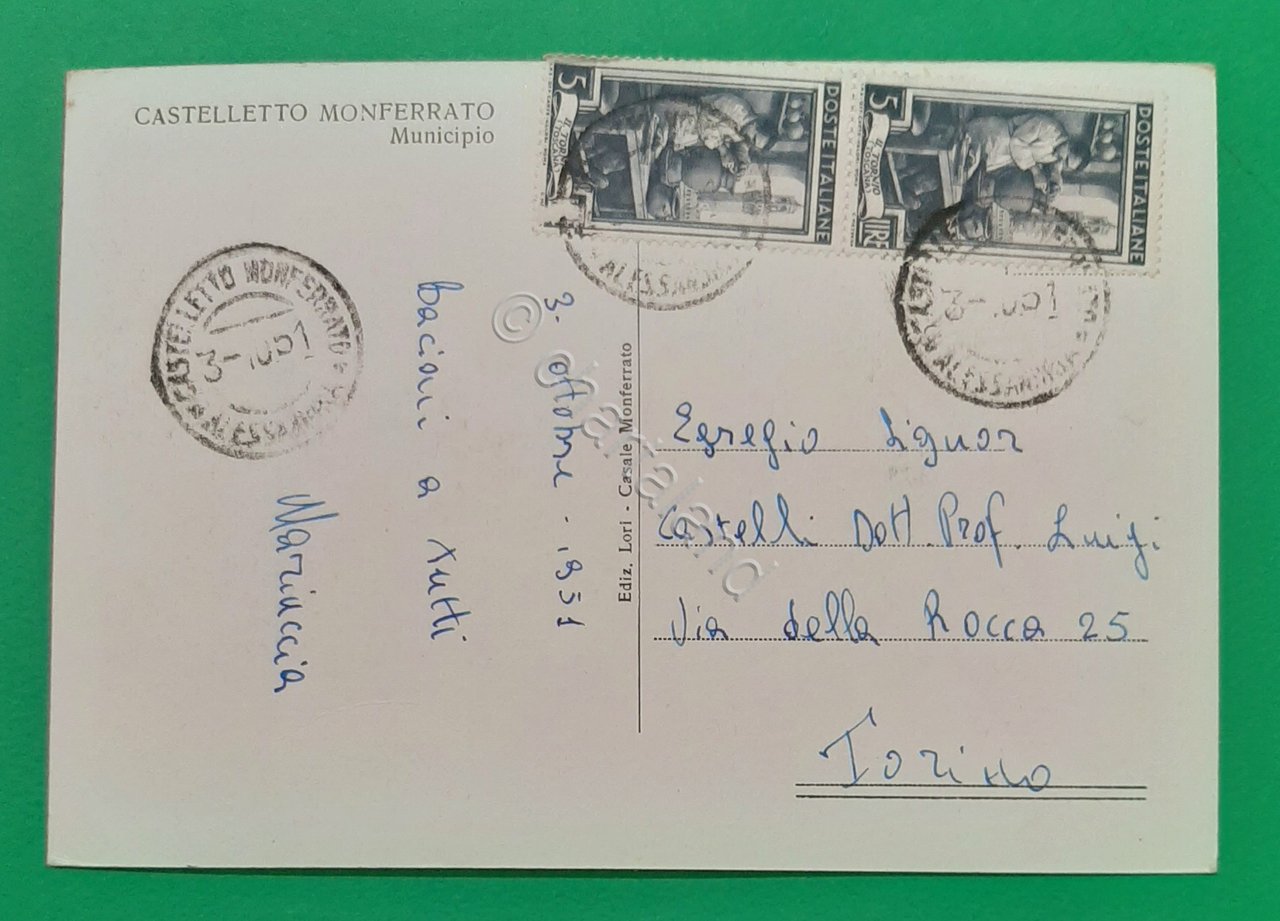 CASTELLETTO MONFERRATO
Municipio
5
IL TORNIO
(TOSCANA)
POSTE ITALIANE
5
LIRE
IL TORNIO
(TOSCANA)
POSTE ITALIANE
ALESSANDRIA
CASTELLETTO MONFERRATO
ALESSANDRIA
ALESSANDRIA
3. ottobre . 1951
bacioni a tutti
Mariuccia
Ediz. Lori - Casale Monferrato
Egregio Signor
Castelli Dott. Prof. Luigi
Via della Rocca 25
Torino